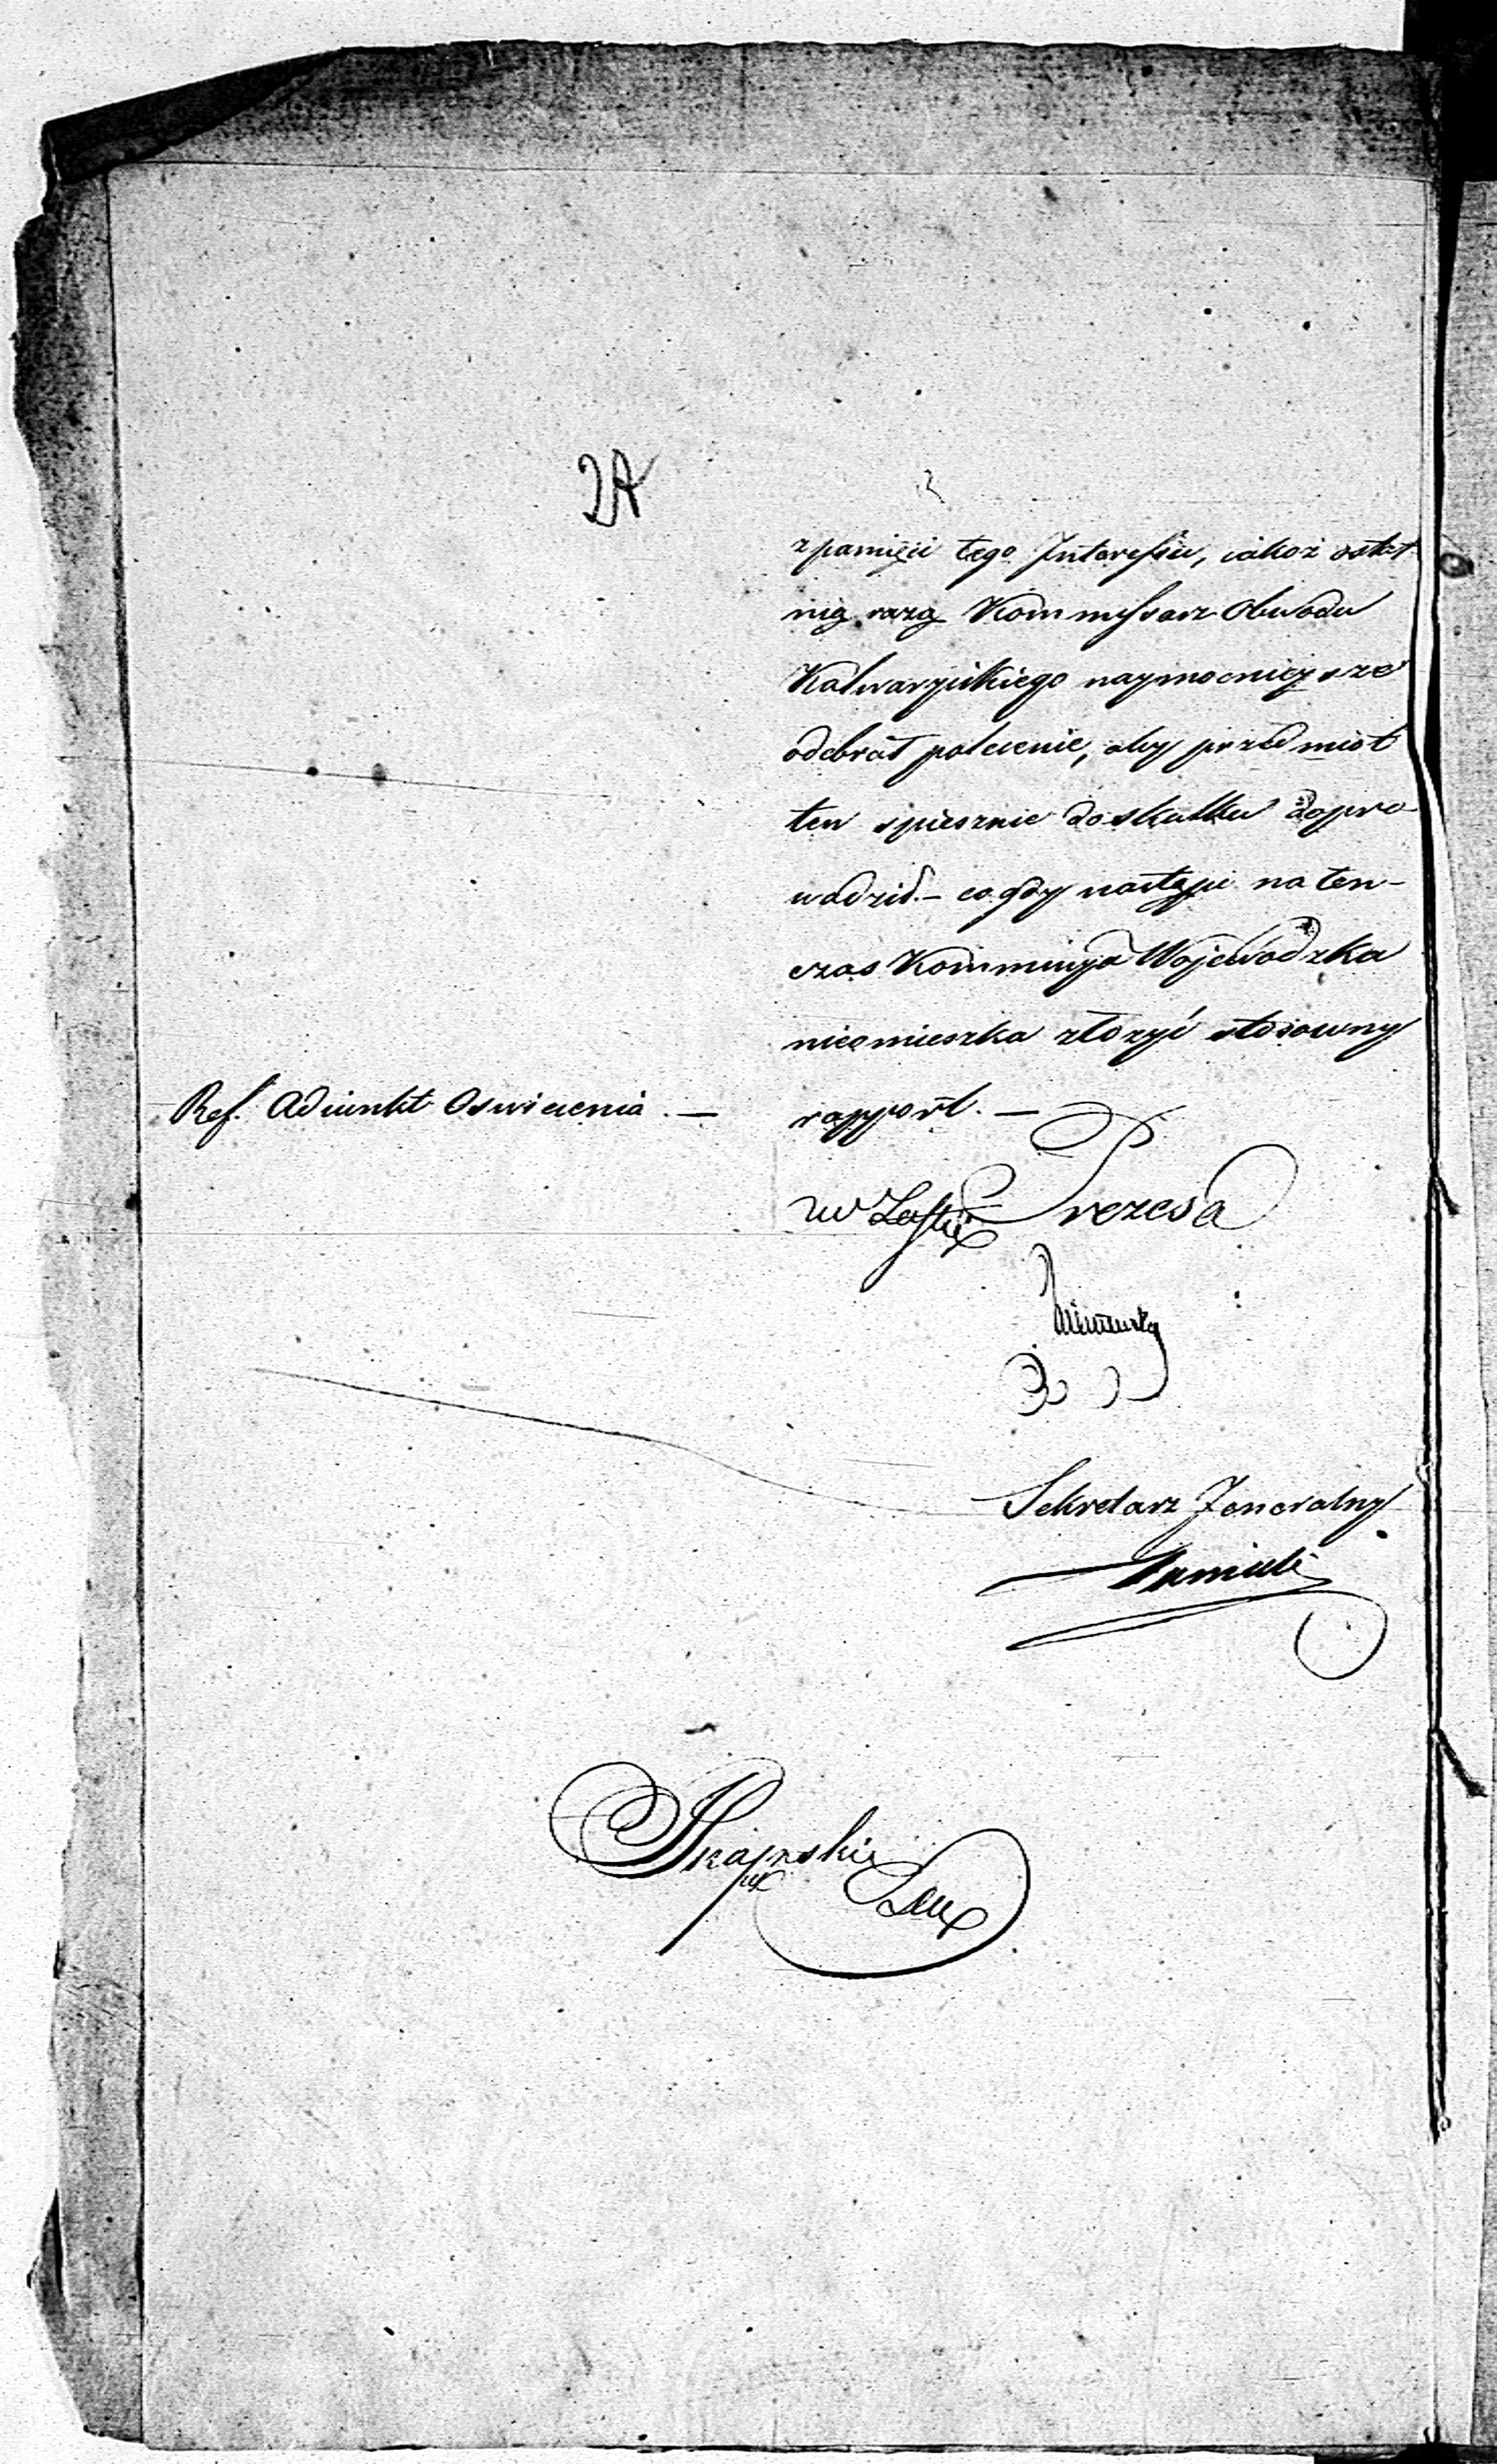 z pamięci tego Interessu, iakoż ostat-
nią razą Kommissarz Obwodu
Kalwaryiskiego naymocnieysze
odebrał polecenie, aby przedmiot
ten spiesznie do skutku dopro-
wadził. – co gdy nastąpi na ten-
czas Kommissya Wojewódzka
nieomieszka złożyć stosowny
Ref. Adiunkt Oswiecenia. —
rapport. —
w Zastęp Prezesa
Sekretarz Jeneralny